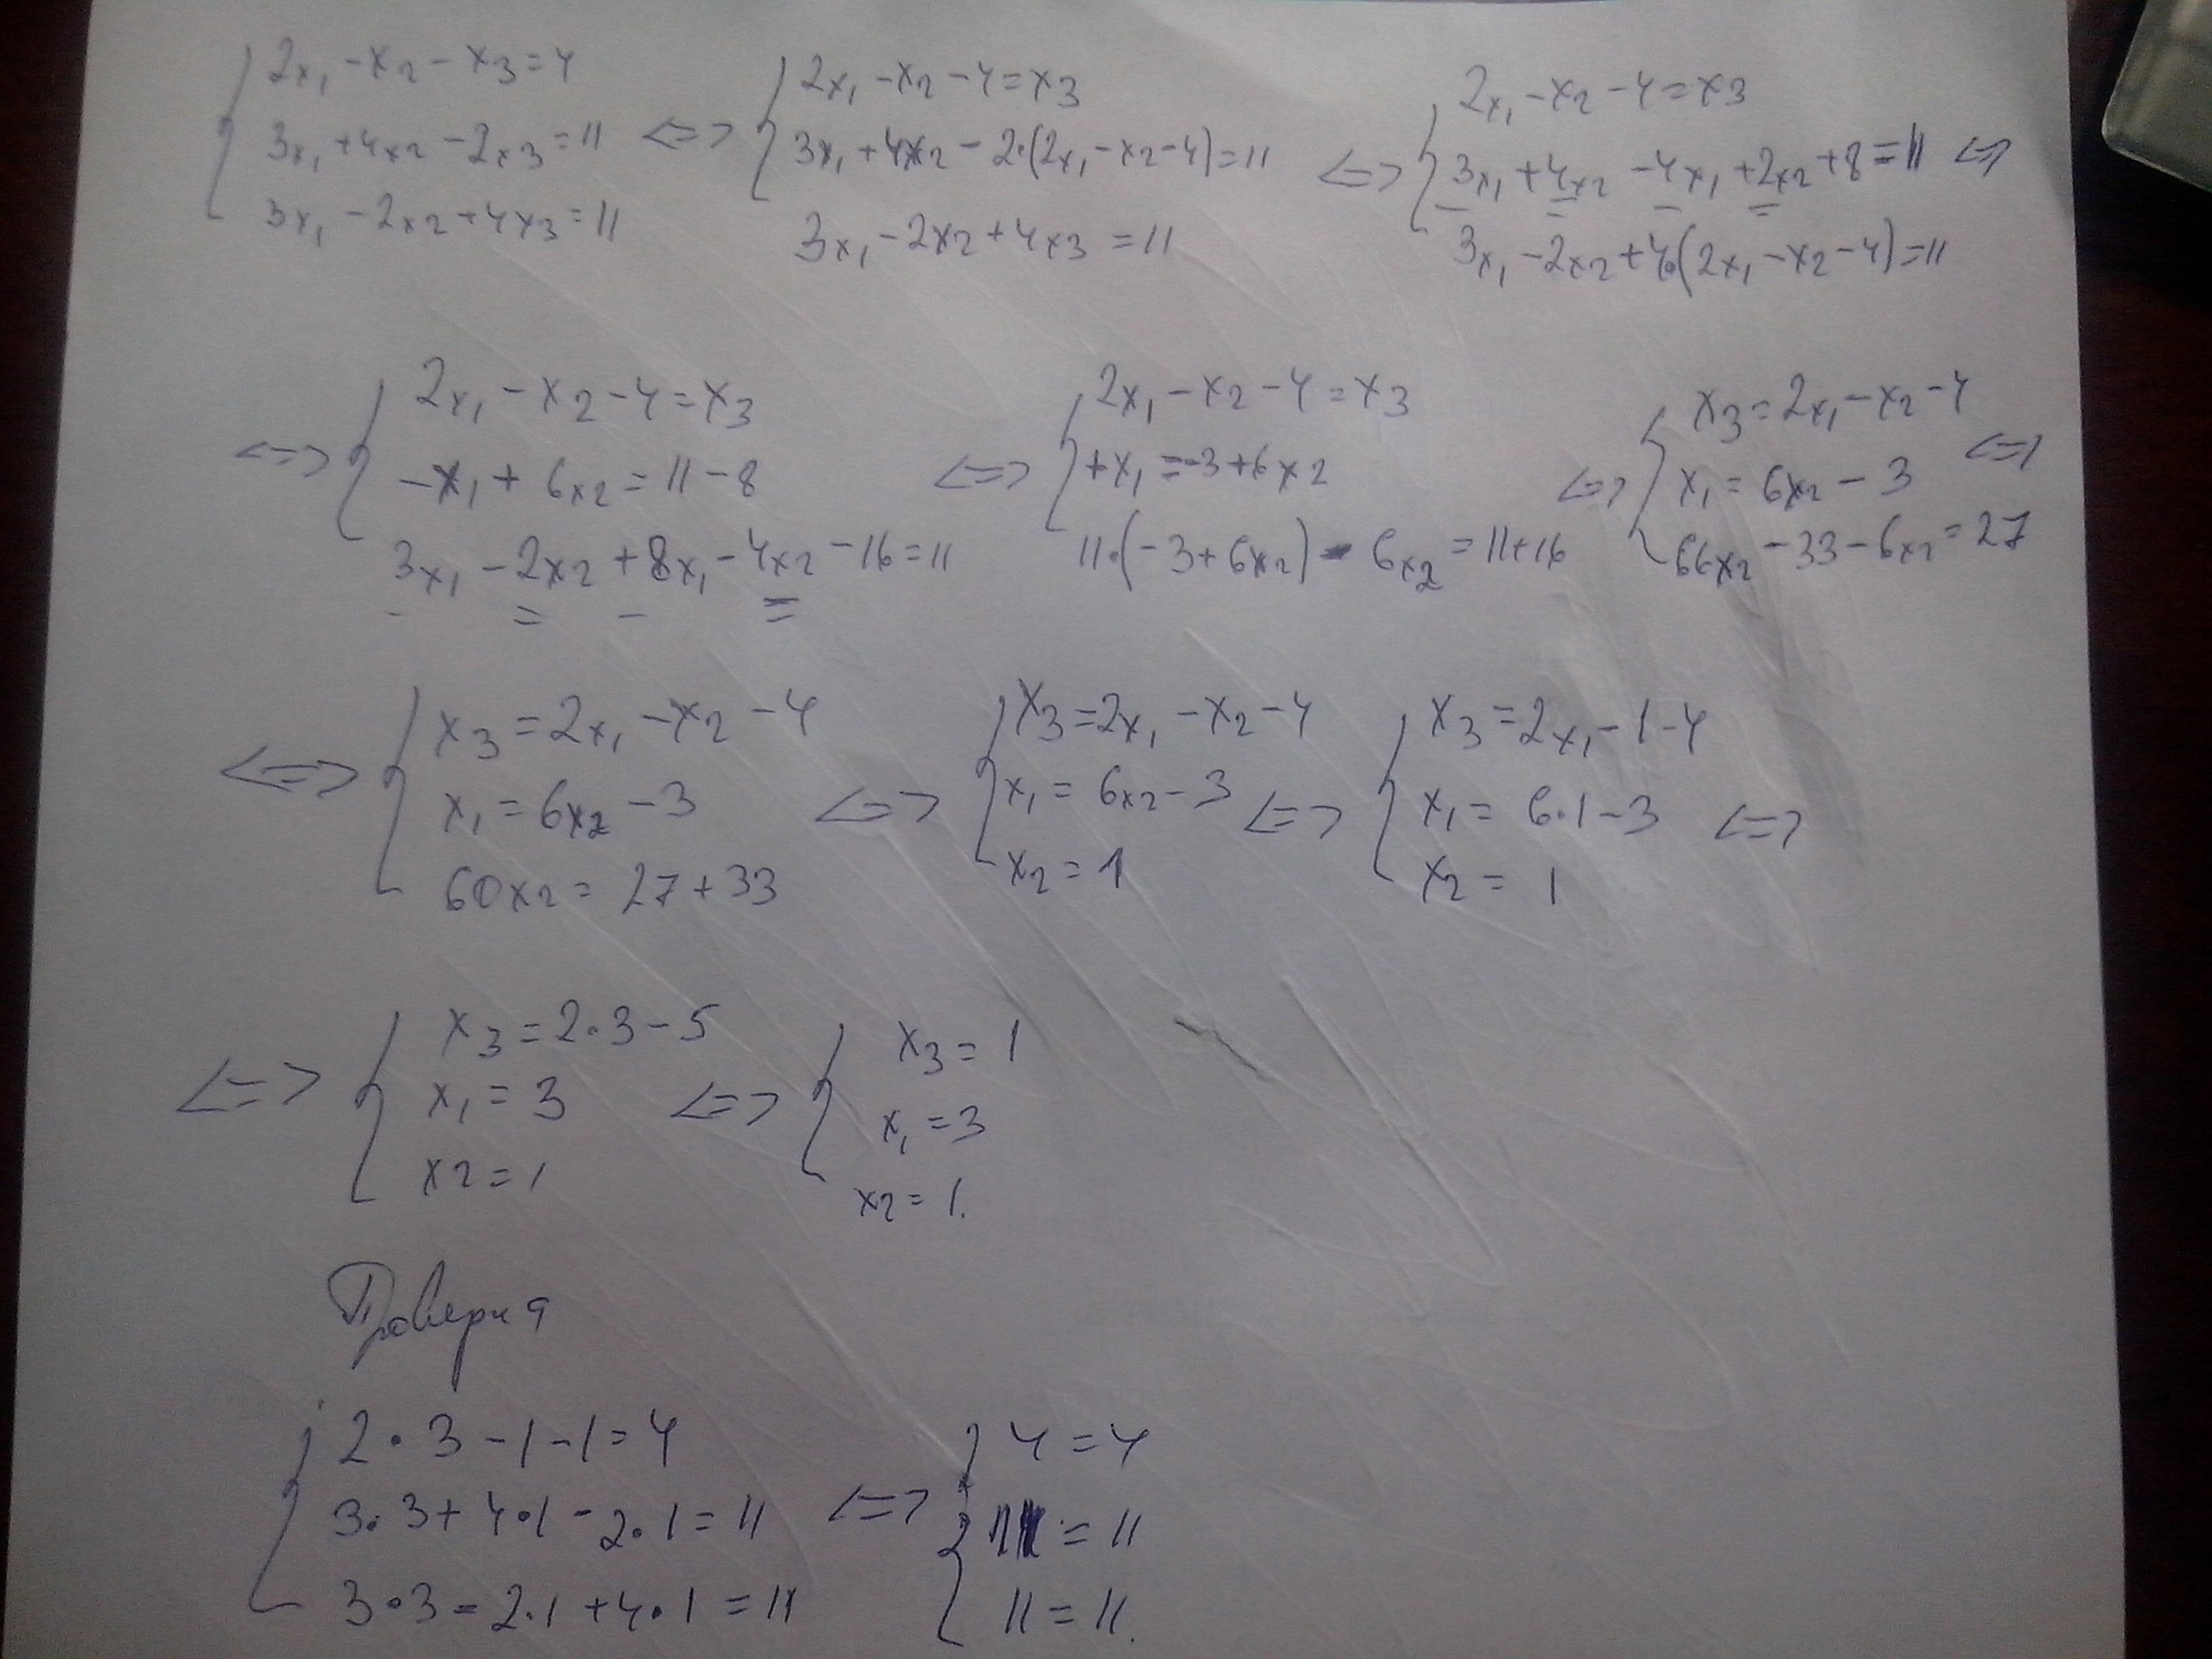 2x₁ - x₂ - x₃ = 4
3x₁ + 4x₂ - 2x₃ = 11
3x₁ - 2x₂ + 4x₃ = 11
<=>
2x₁ - x₂ - 4 = x₃
3x₁ + 4x₂ - 2·(2x₁ - x₂ - 4) = 11
3x₁ - 2x₂ + 4x₃ = 11
<=>
2x₁ - x₂ - 4 = x₃
3x₁ + 4x₂ - 4x₁ + 2x₂ + 8 = 11 <=>
3x₁ - 2x₂ + 4·(2x₁ - x₂ - 4) = 11
<=>
2x₁ - x₂ - 4 = x₃
-x₁ + 6x₂ = 11 - 8
3x₁ - 2x₂ + 8x₁ - 4x₂ - 16 = 11
<=>
2x₁ - x₂ - 4 = x₃
+x₁ = -3 + 6x₂
11·(-3 + 6x₂) - 6x₂ = 11 + 16
<=>
x₃ = 2x₁ - x₂ - 4
x₁ = 6x₂ - 3 <=>
66x₂ - 33 - 6x₂ = 27
<=>
x₃ = 2x₁ - x₂ - 4
x₁ = 6x₂ - 3
60x₂ = 27 + 33
<=>
x₃ = 2x₁ - x₂ - 4
x₁ = 6x₂ - 3
x₂ = 1
<=>
x₃ = 2x₁ - 1 - 4
x₁ = 6·1 - 3 <=>
x₂ = 1
<=>
x₃ = 2·3 - 5
x₁ = 3
x₂ = 1
<=>
x₃ = 1
x₁ = 3
x₂ = 1.
2·3 - 1 - 1 = 4
3·3 + 4·1 - 2·1 = 11
3·3 - 2·1 + 4·1 = 11
<=>
4 = 4
11 = 11
11 = 11.